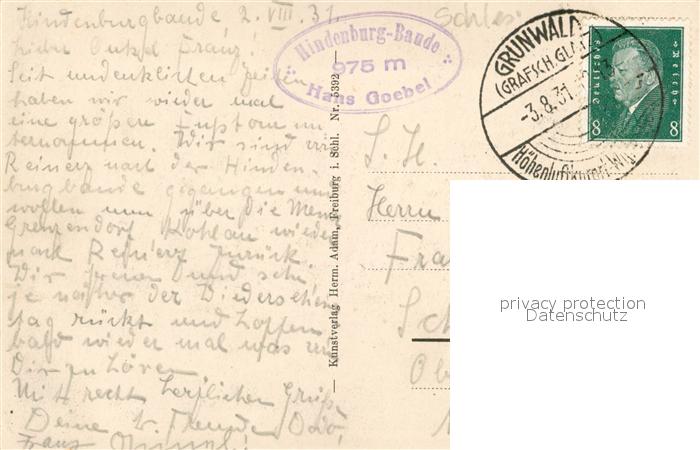 Hindenburgbaude 2. VIII 31.
Lieber Onkel Franz!
Seit undenklichen Zeiten
haben wir wieder mal
eine großen Fußtour un-
ternommen. Wir sind von
Reinerz nach der Hinden-
burgbaude gegangen und
wollen nun über die Mense
Grenzendorf Kohlau wieder
nach Reinerz zurück.
Wir freuen und sehr,
je näher der Wiedersehens
tag rückt und hoffen
bald wieder mal was von
Dir zu hören
Mit recht herzlichen Gruß
Deine
Franz
Hindenburg-Baude
975 m
Hans Goebel
Schles.
GRUNWALD
(GRAFSCH. GLATZ)
-3.8.31.
Höhenluftkurort
Deutsches Reich
8 8
— Kunstverlag Herm. Adam, Freiburg i. Schl. Nr. 5392 —
S. H.
Herrn
Fra
Sch
Ob
privacy protection
Datenschutz